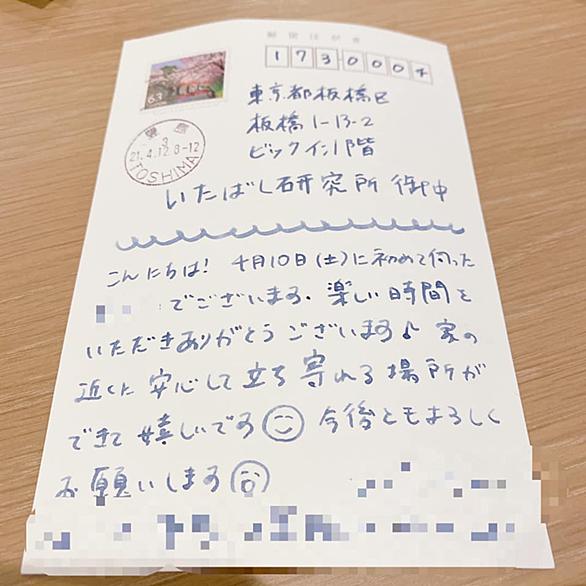 郵便はがき
1730004
63
豊島
3
21.4.12.8-12
TOSHIMA
東京都板橋区
板橋1-13-2
ビックイン1階
いたばし研究所 御中
こんにちは! 4月10日(土)に初めて伺った
でございます. 楽しい時間を
いただきありがとうございます♪ 家の
近くに安心して立ち寄れる場所が
できて嬉しいです 今後ともよろしく
お願いします